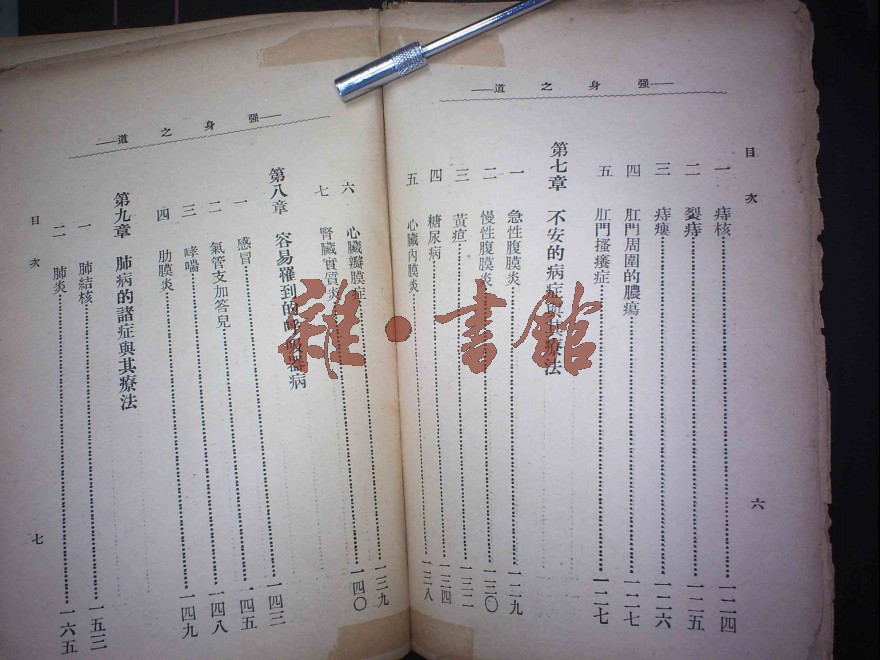 強身之道
目次
一 痔核 一二四
二 裂痔 一二五
三 痔瘻 一二六
四 肛門周圍的膿瘍 一二七
五 肛門搔癢症 一二七
第七章 不安的病症與其療法
一 急性腹膜炎 一二九
二 慢性腹膜炎 一三〇
三 黃疸 一三二
四 糖尿病 一三四
五 心臟內膜炎 一三八
六
強身之道
六 心臟瓣膜症 一三九
七 腎臟實質炎 一四〇
第八章 容易罹到的呼吸器病
一 感冒 一四三
二 氣管支加答兒 一四五
三 哮喘 一四八
四 肋膜炎 一四九
第九章 肺病的諸症與其療法
一 肺結核 一五三
二 肺炎 一六五
目次
七
雜·書館